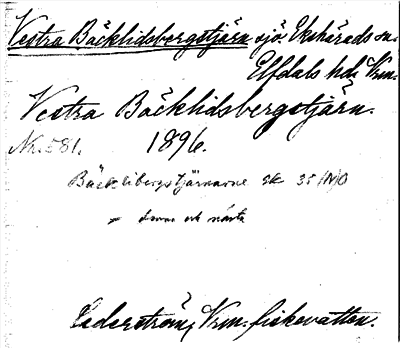 Vestra Bäcklidsbergstjärn sjö. Ekshärads sn.
Elfdals hd. Vrm.
Vestra Bäcklidsbergstjärn.
Nr. 581. 1896.
Bäcklibergstjärnarne sk 35 NO
och västa
Cederström, Vrm. fiskevatten.